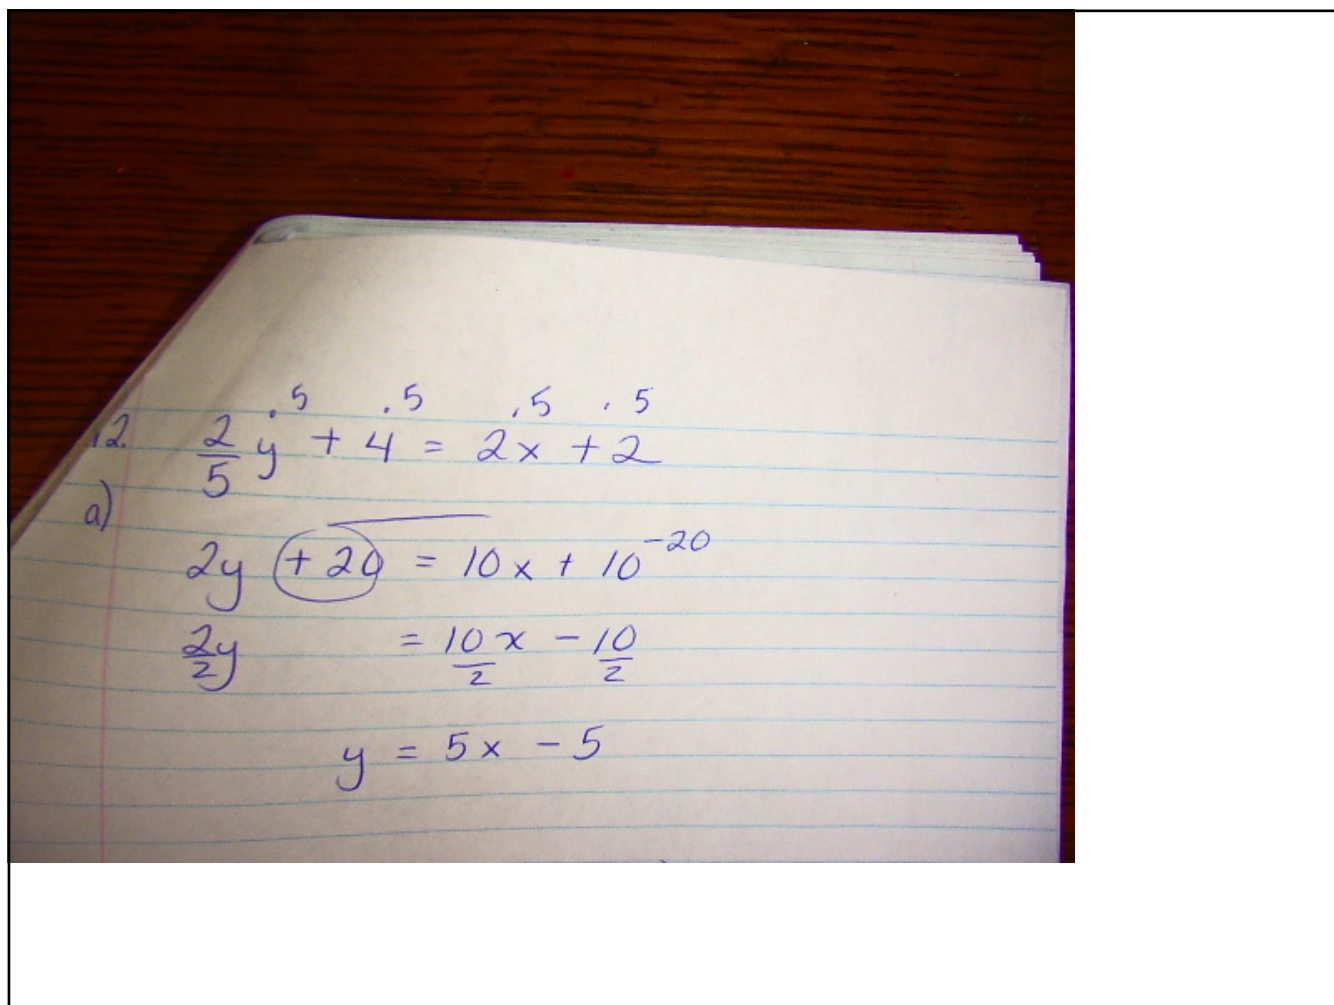 .5 .5 .5 .5
12. 2/5 y + 4 = 2x + 2
a)
2y + 20 = 10x + 10 -20
2y/2 = 10/2 x - 10/2
y = 5x - 5